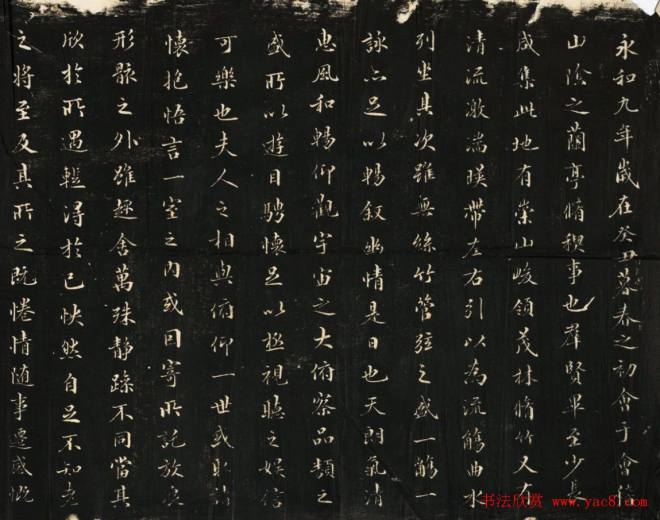 永和九年歲在癸丑暮春之初會于會稽
山陰之蘭亭脩稧事也群賢畢至少長
咸集此地有崇山峻領茂林脩竹又有
清流激湍暎帶左右引以為流觴曲水
列坐其次雖無絲竹管弦之盛一觴一
詠亦足以暢叙幽情是日也天朗氣清
惠風和暢仰觀宇宙之大俯察品類之
盛所以遊目騁懷足以極視聽之娛信
可樂也夫人之相與俯仰一世或取諸
懷抱悟言一室之內或因寄所託放浪
形骸之外雖趣舍萬殊靜躁不同當其
欣於所遇蹔得於己怏然自足不知老
之將至及其所之既惓情隨事遷感慨
书法欣赏 www.yac8.com